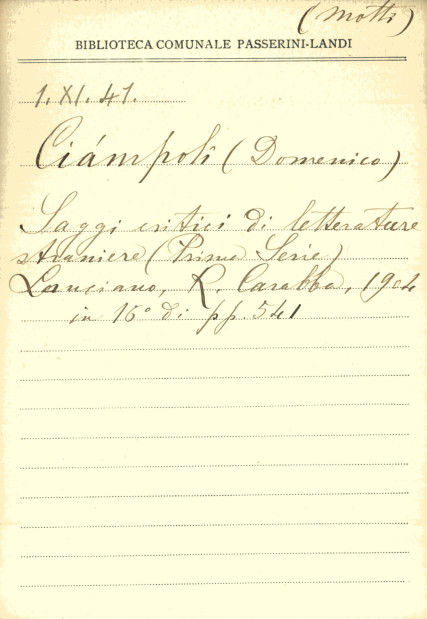 (Motti)
BIBLIOTECA COMUNALE PASSERINI-LANDI
1. XI. 41.
Ciámpoli (Domenico)
Saggi critici di letterature
straniere (Prima Serie)
Lanciano, R. Carabba, 1904
in 16° di pp. 541